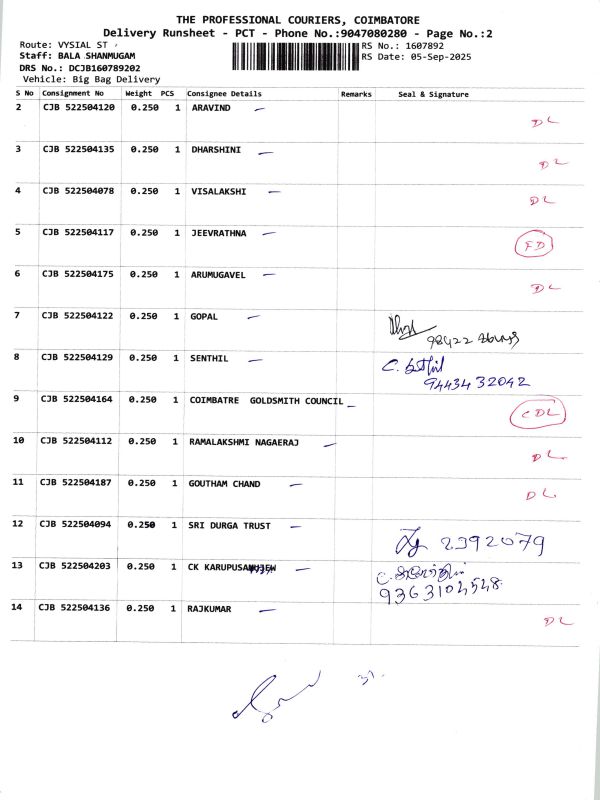 THE PROFESSIONAL COURIERS, COIMBATORE
Delivery Runsheet - PCT - Phone No.:9047080280 - Page No.:2
Route: VYSIAL ST
RS No.: 1607892
Staff: BALA SHANMUGAM
RS Date: 05-Sep-2025
DRS No.: DCJB160789202
Vehicle: Big Bag Delivery
S No Consignment No Weight PCS Consignee Details Remarks Seal & Signature
2 CJB 522504120 0.250 1 ARAVIND — DL
3 CJB 522504135 0.250 1 DHARSHINI — DL
4 CJB 522504078 0.250 1 VISALAKSHI — DL
5 CJB 522504117 0.250 1 JEEVRATHNA — FD
6 CJB 522504175 0.250 1 ARUMUGAVEL — DL
7 CJB 522504122 0.250 1 GOPAL —
98422
8 CJB 522504129 0.250 1 SENTHIL — C.
9443432042
9 CJB 522504164 0.250 1 COIMBATRE GOLDSMITH COUNCIL — CDL
10 CJB 522504112 0.250 1 RAMALAKSHMI NAGAERAJ — DL.
11 CJB 522504187 0.250 1 GOUTHAM CHAND — DL.
12 CJB 522504094 0.250 1 SRI DURGA TRUST — 2392079
13 CJB 522504203 0.250 1 CK — C.
9363104548
14 CJB 522504136 0.250 1 RAJKUMAR — DL